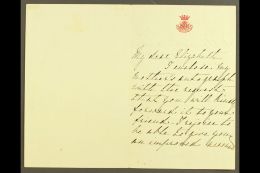 My dear Elizabeth
I enclose my
Mother's autograph
with the request
that you will kindly
forward it to your
friend. I rejoice to
be able to give you
an improved account